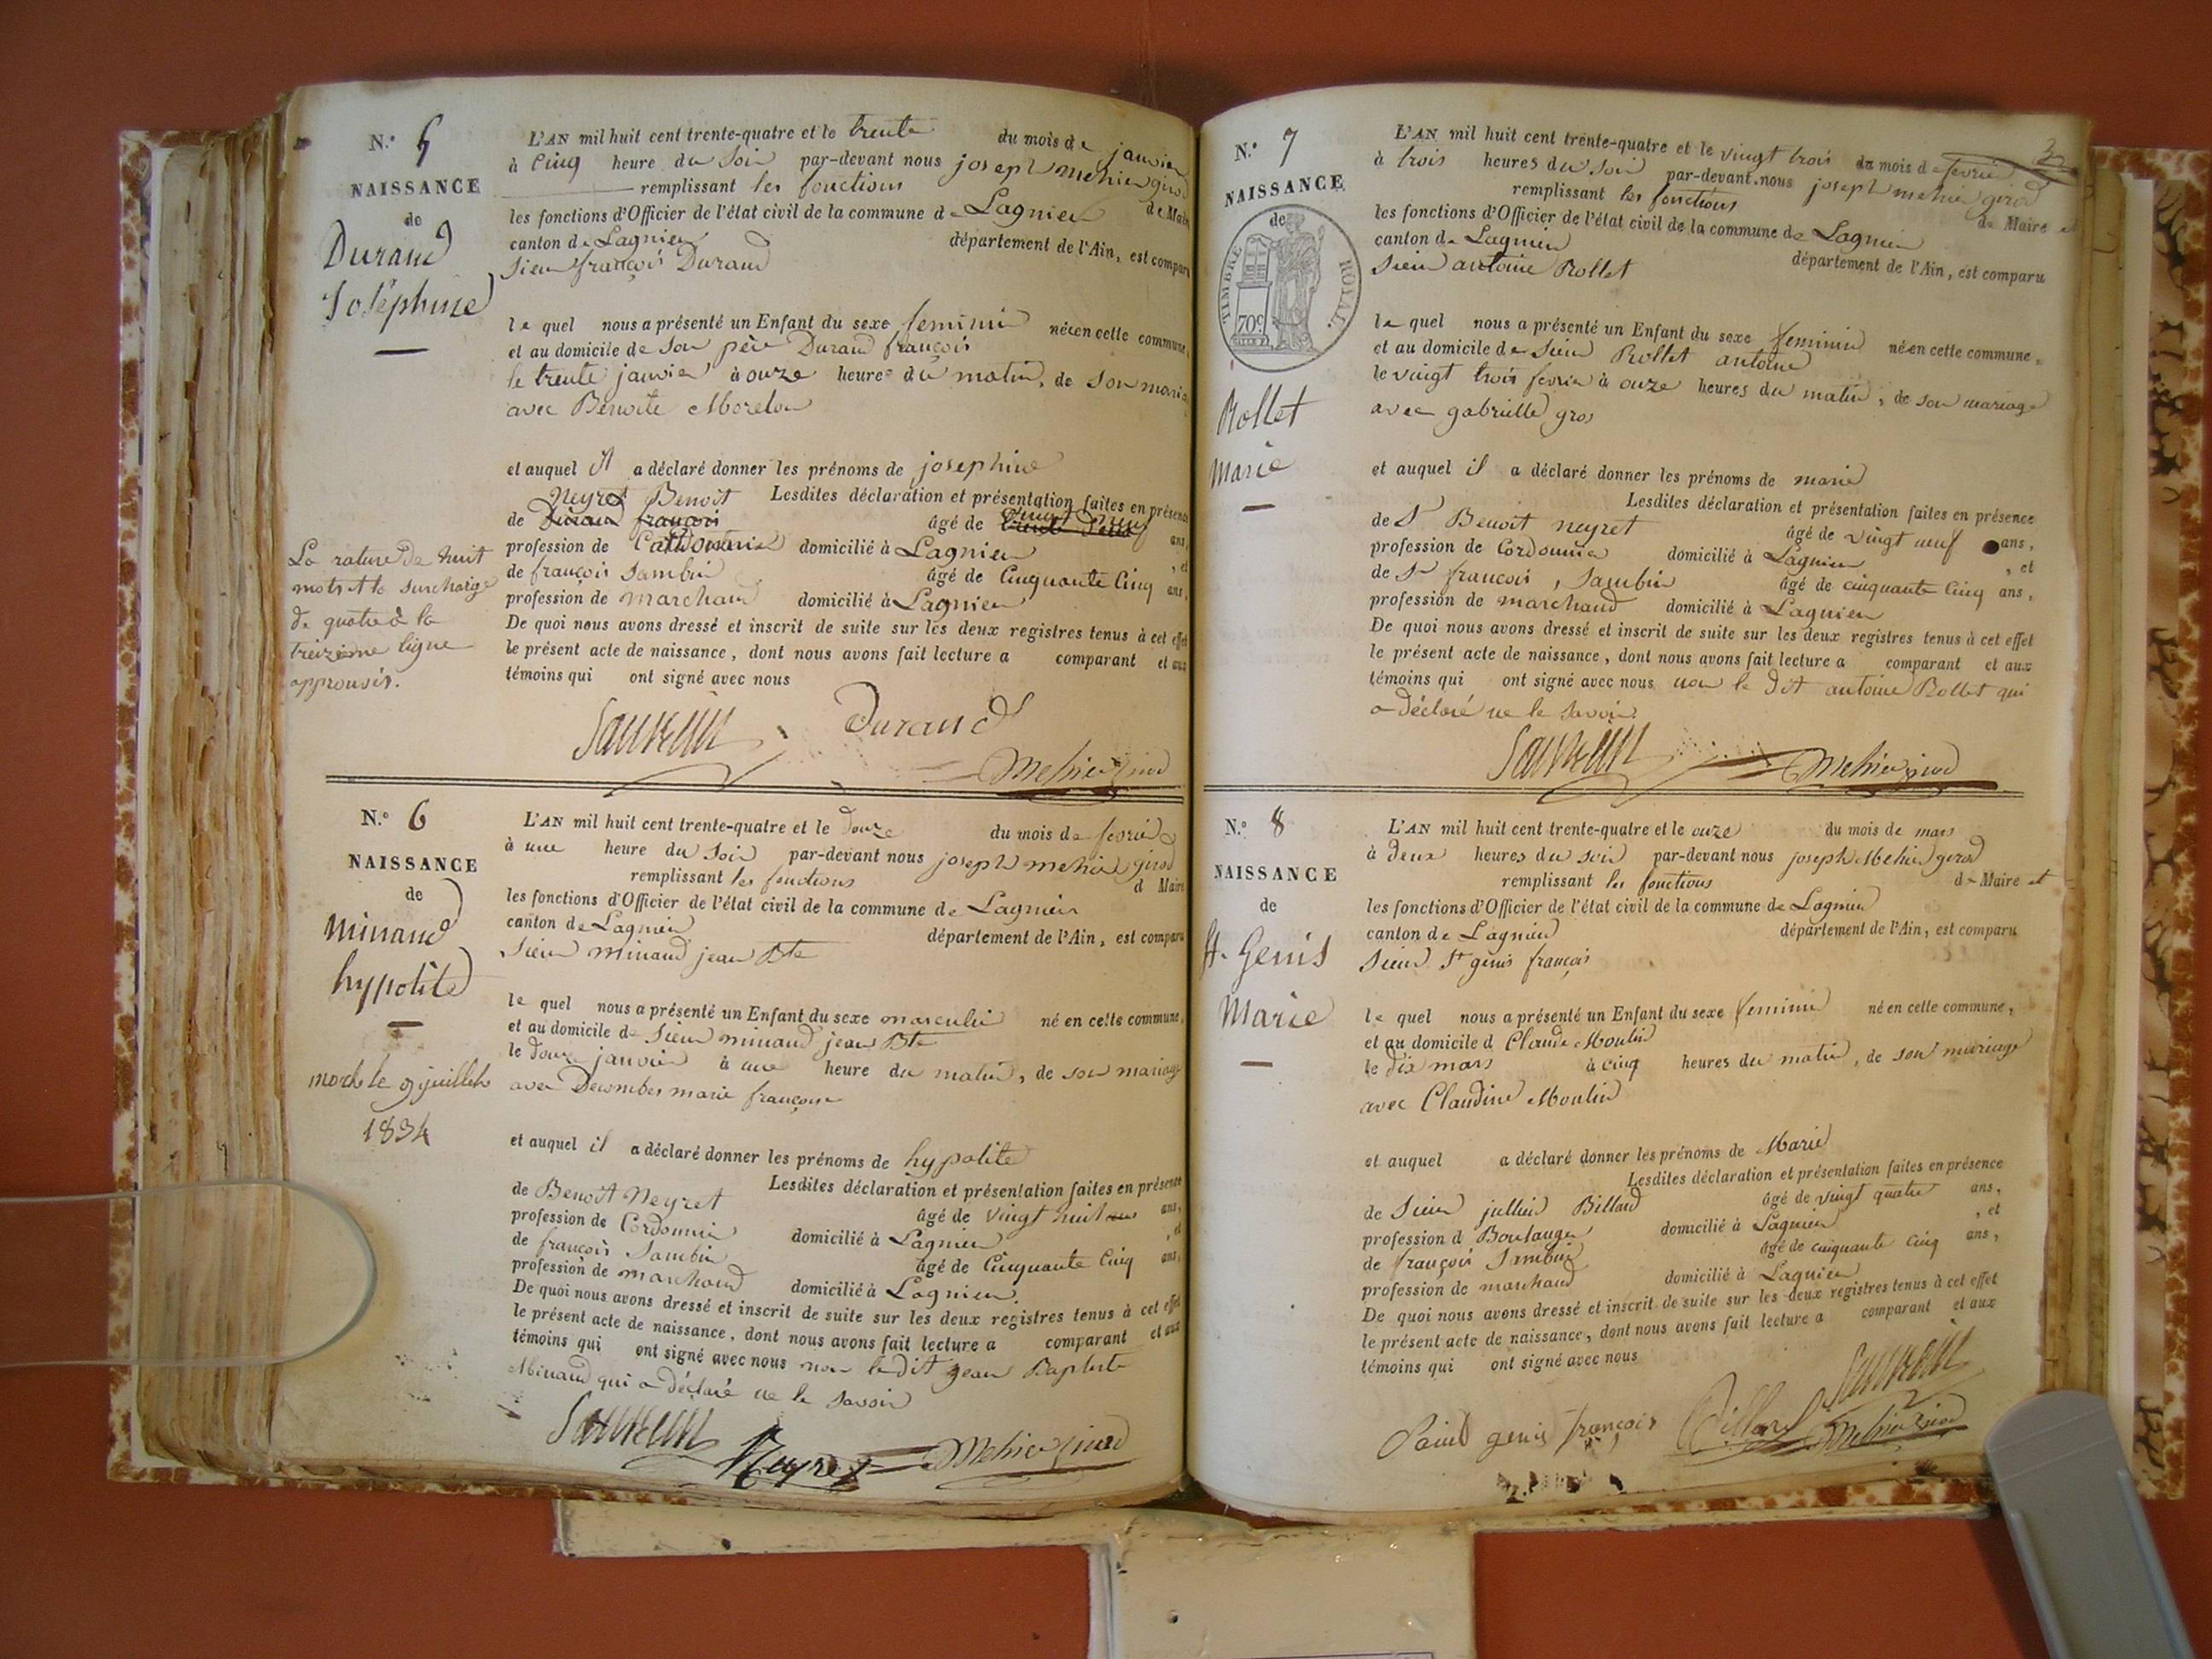 N.° 5
NAISSANCE
de
Durand
Joséphine
La rature de huit
mots et le surcharge
de quatre à la
treizième ligne
approuvés.
L'AN mil huit cent trente-quatre et le trente du mois de janvier
à cinq heure du soir par-devant nous joseph mehier girod
remplissant les fonctions de Maire
les fonctions d'Officier de l'état civil de la commune de Lagnieu
canton de Lagnieu département de l'Ain, est comparu
Sieur françois Durand
le quel nous a présenté un Enfant du sexe feminin né en cette commune,
et au domicile de son père Durand françois
le trente janvier à onze heure du matin, de son mariage
avec Benoite Morelon
et auquel il a déclaré donner les prénoms de josephine
Lesdites déclaration et présentation faites en présence
Neyret Benoit vingt neuf
de Durand françois âgé de trente deux ans,
profession de Cordonnier domicilié à Lagnieu, et
de françois Sambin âgé de Cinquante Cinq ans,
profession de marchand domicilié à Lagnieu
De quoi nous avons dressé et inscrit de suite sur les deux registres tenus à cet effet
le présent acte de naissance, dont nous avons fait lecture a comparant et aux
témoins qui ont signé avec nous
Durand
Mehier girod
N.° 6
NAISSANCE
de
Minand
hypolite
mort le 9 juillet
1834
L'AN mil huit cent trente-quatre et le douze du mois de fevrier
à une heure du soir par-devant nous joseph mehier girod
remplissant les fonctions d Maire
les fonctions d'Officier de l'état civil de la commune de Lagnieu
canton de Lagnieu département de l'Ain, est comparu
Sieur minand jean Bte
le quel nous a présenté un Enfant du sexe masculin né en cette commune,
et au domicile de Sieur minand jean Bte
le douze janvier à une heure du matin, de son mariage
avec Decombes marie françoise
et auquel il a déclaré donner les prénoms de hypolite
Lesdites déclaration et présentation faites en présence
de Benoit Neyret âgé de vingt huit ans ans,
profession de Cordonnier domicilié à Lagnieu, et
de françois Sambin âgé de Cinquante Cinq ans,
profession de marchand domicilié à Lagnieu.
De quoi nous avons dressé et inscrit de suite sur les deux registres tenus à cet effet
le présent acte de naissance, dont nous avons fait lecture a comparant et aux
témoins qui ont signé avec nous non le dit jean Baptiste
Minand qui a déclaré ne le savoir
Neyret Mehier girod
N.° 7
NAISSANCE
de
TIMBRE ROYAL.
70c
Rollet
Marie
L'AN mil huit cent trente-quatre et le vingt trois du mois de fevrier
à trois heures du soir par-devant nous joseph mehier girod
remplissant les fonctions de Maire et
les fonctions d'Officier de l'état civil de la commune de Lagnieu
canton de Lagnieu département de l'Ain, est comparu
Sieur antoine Rollet
le quel nous a présenté un Enfant du sexe feminin né en cette commune,
et au domicile de Sieur Rollet antoine
le vingt trois fevrier à onze heures du matin, de son mariage
avec gabrielle gros
et auquel il a déclaré donner les prénoms de marie
Lesdites déclaration et présentation faites en présence
de Sr Benoit neyret âgé de vingt neuf ans,
profession de Cordonnier domicilié à Lagnieu, et
de Sr françois, Sambin âgé de cinquante Cinq ans,
profession de marchand domicilié à Lagnieu
De quoi nous avons dressé et inscrit de suite sur les deux registres tenus à cet effet
le présent acte de naissance, dont nous avons fait lecture a comparant et aux
témoins qui ont signé avec nous non le dit antoine Rollet qui
a déclaré ne le savoir
Mehier girod
N.° 8
NAISSANCE
de
St. Genis
Marie
L'AN mil huit cent trente-quatre et le onze du mois de mars
à deux heures du soir par-devant nous joseph Mehier girod
remplissant les fonctions de Maire et
les fonctions d'Officier de l'état civil de la commune de Lagnieu
canton de Lagnieu département de l'Ain, est comparu
Sieur St genis françois
le quel nous a présenté un Enfant du sexe feminin né en cette commune,
et au domicile d Claude Moulin
le dix mars à cinq heures du matin, de son mariage
avec Claudine Moulin
et auquel a déclaré donner les prénoms de Marie
Lesdites déclaration et présentation faites en présence
de Sieur jullien Billard âgé de vingt quatre ans,
profession d Boulanger domicilié à Lagnieu, et
de françois Sambin âgé de cinquante cinq ans,
profession de marchand domicilié à Lagnieu
De quoi nous avons dressé et inscrit de suite sur les deux registres tenus à cet effet
le présent acte de naissance, dont nous avons fait lecture a comparant et aux
témoins qui ont signé avec nous
Saint genis françois Billard Mehier girod